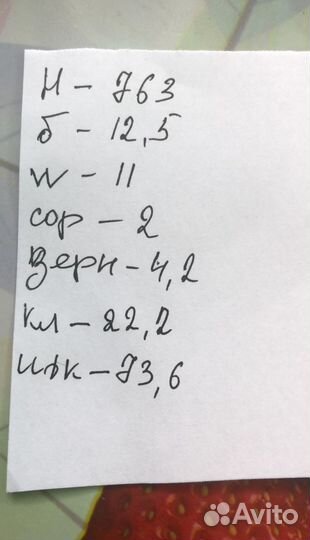 Н - 763
б - 12,5
W - 11
сор - 2
Зерн - 4,2
кл - 22,2
идк - 73,6
Avito